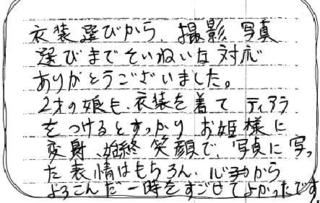 衣装選びから、撮影、写真
選びまでていねいな対応
ありがとうございました。
2才の娘も、衣装を着て ティアラ
をつけるとすっかり お姫様に
変身、始終 笑顔で、写真に写っ
た表情はもちろん、心から
よろこんだ一時をすごせてよかったです。